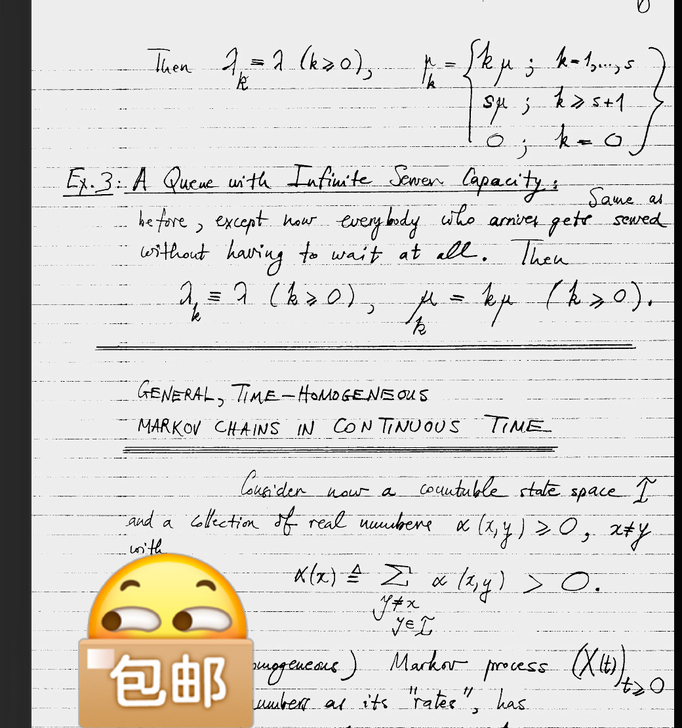 Then λ_k ≡ λ (k ≥ 0), μ_k = { kμ ; k=1,...,s
sμ ; k ≥ s+1
0 ; k = 0 }
Ex. 3: A Queue with Infinite Server Capacity: Same as
before, except now everybody who arrives gets served
without having to wait at all. Then
λ_k ≡ λ (k ≥ 0), μ_k = kμ (k ≥ 0).
GENERAL, TIME-HOMOGENEOUS
MARKOV CHAINS IN CONTINUOUS TIME
Consider now a countable state space I
and a collection of real numbers α(x,y) ≥ 0, x≠y
with
α(x) ≜ Σ_{y≠x, y∈I} α(x,y) > 0.
omogeneous) Markov process (X(t))_{t≥0}
umbers as its "rates", has
包邮